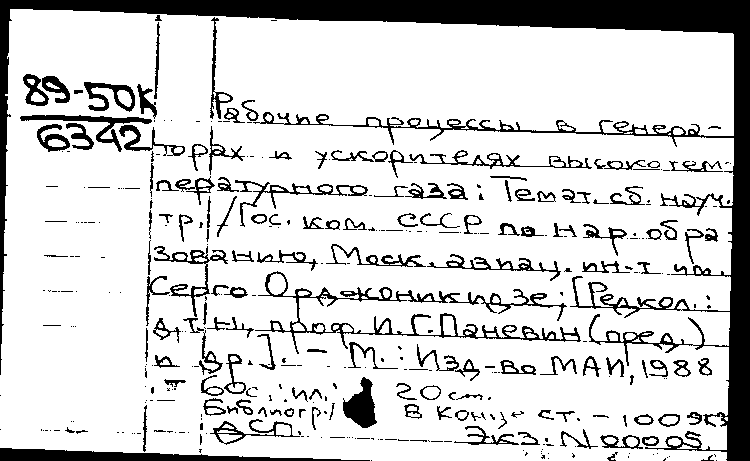 89-50К
6342
Рабочие процессы в генера-
торах и ускорителях высокотем-
пературного газа: Темат. сб. науч.
тр. / Гос. ком. СССР по нар. обра-
зованию, Моск. авиац. ин-т им.
Серго Орджоникидзе; [Редкол.:
д.т.н., проф. И.Г. Паневин (пред.)
и др.]. - М.: Изд-во МАИ, 1988
. - 60 с.: ил.; 20 см.
Библиогр. в конце ст. - 100 экз
ДСП. Экз: N 00005.